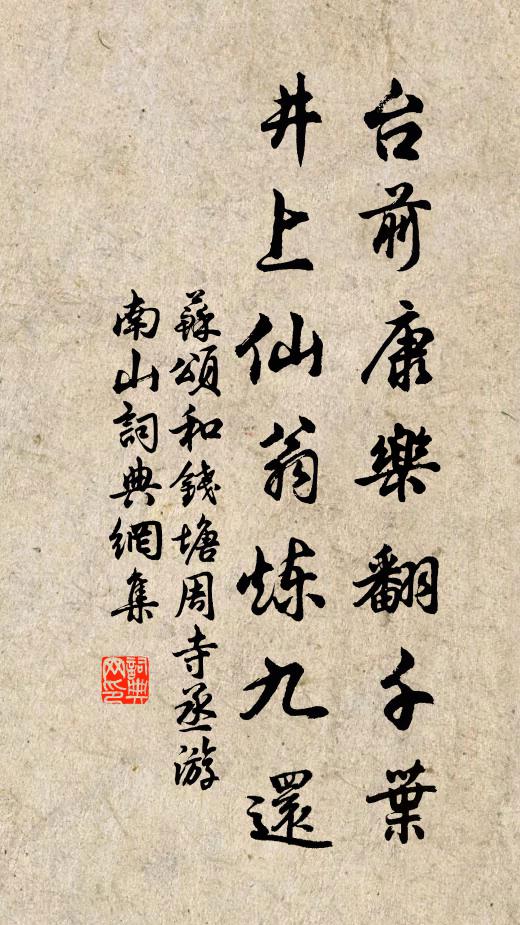 台前康樂翻千葉
井上仙翁炼九還
蘇頌和錢塘周寺丞游
南山詞典網集
詞典
网印